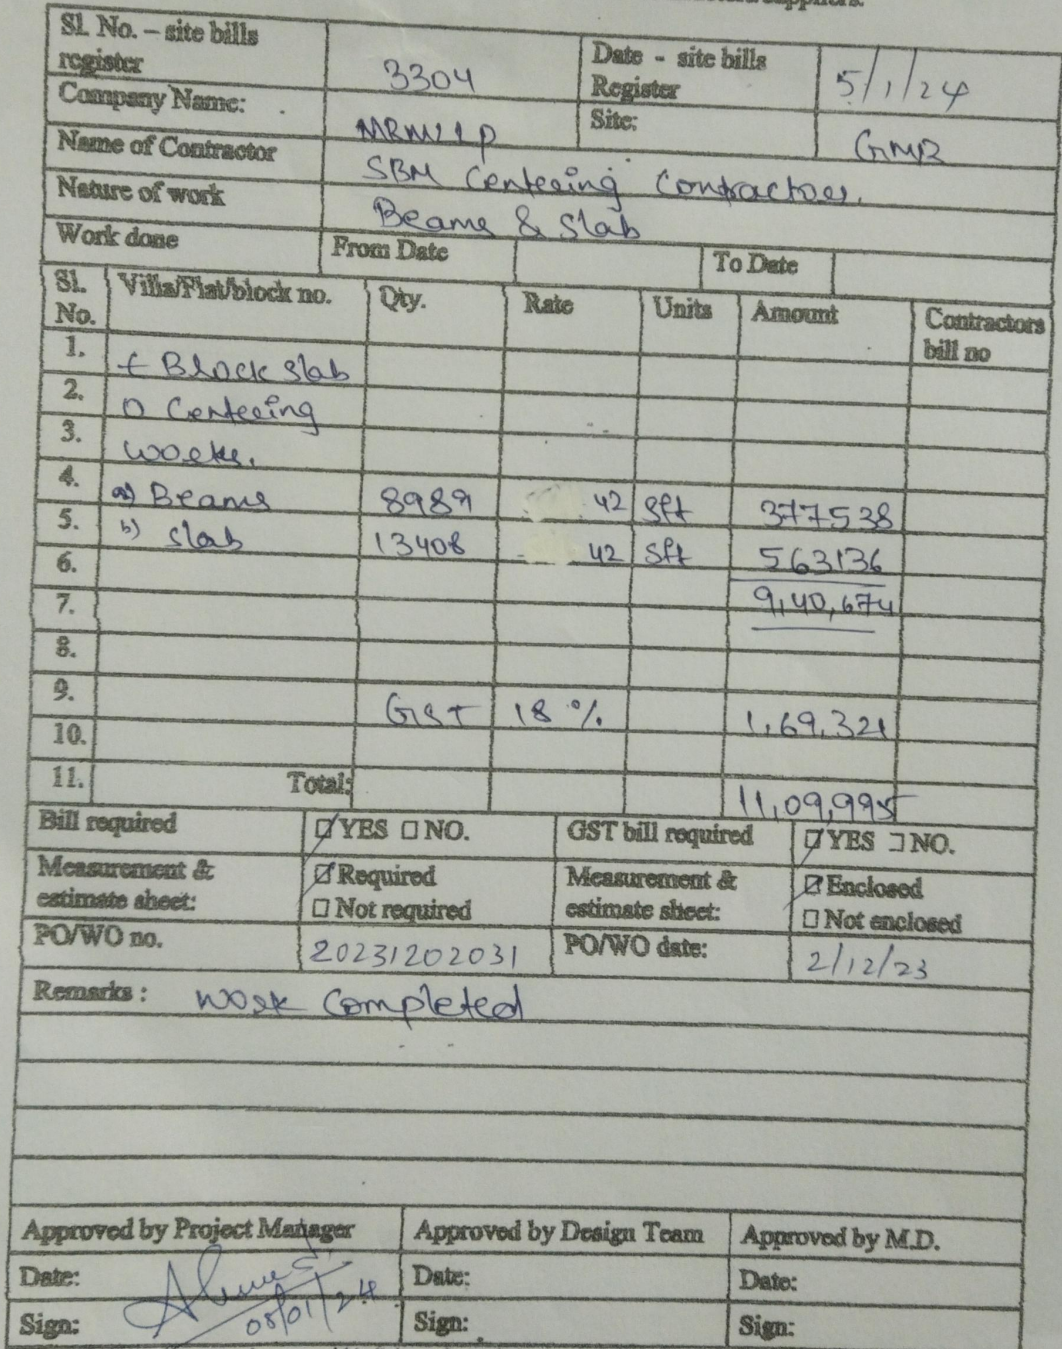 suppliers.
Sl. No. – site bills register 3304 Date - site bills Register 5/1/24
Company Name: MRMLLP Site: GMR
Name of Contractor SBM Centering Contractor.
Nature of work Beams & Slab
Work done From Date To Date
Sl. No. Villa/Flat/block no. Qty. Rate Units Amount Contractors bill no
1. f Block slab
2. Centering
3. works.
4. a) Beams 8989 42 sft 377538
5. b) slab 13408 42 sft 563136
6. 9,40,674
7.
8.
9. GST 18 % 1,69,321
10.
11. Total: 11,09,995
Bill required YES NO. GST bill required YES NO.
Measurement & estimate sheet: Required Measurement & estimate sheet: Enclosed
Not required Not enclosed
PO/WO no. 20231202031 PO/WO date: 2/12/23
Remarks : Work Completed
Approved by Project Manager Approved by Design Team Approved by M.D.
Date: Date: Date:
Sign: 08/01/24 Sign: Sign: